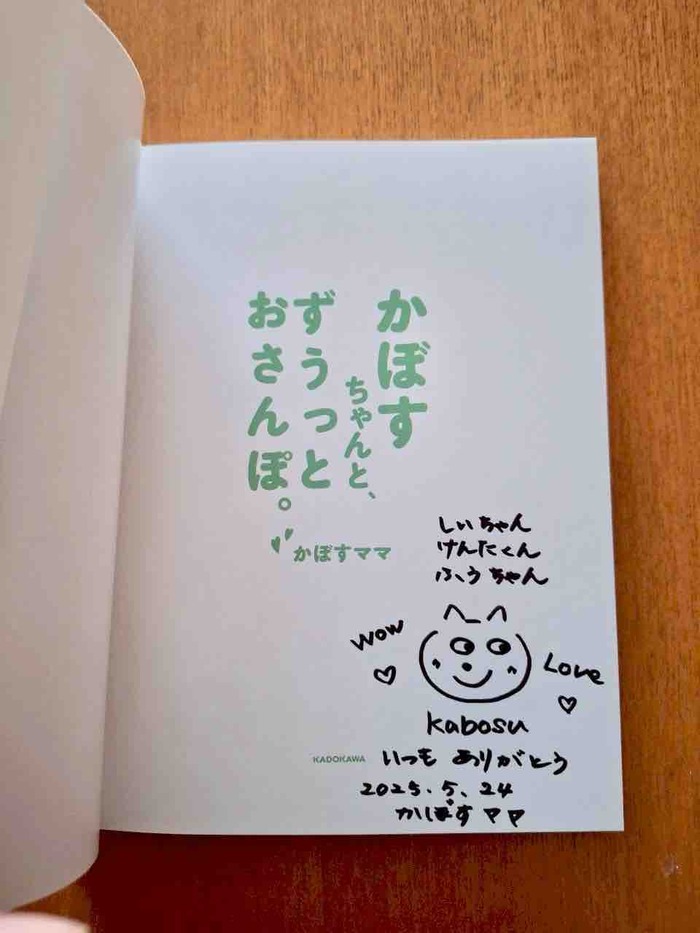 かぼす
ちゃんと、
ずうっと
おさんぽ。
かぼすママ
しいちゃん
けんたくん
ふうちゃん
Wow
Love
Kabosu
KADOKAWA
いつも ありがとう
2025.5.24
かぼすママ